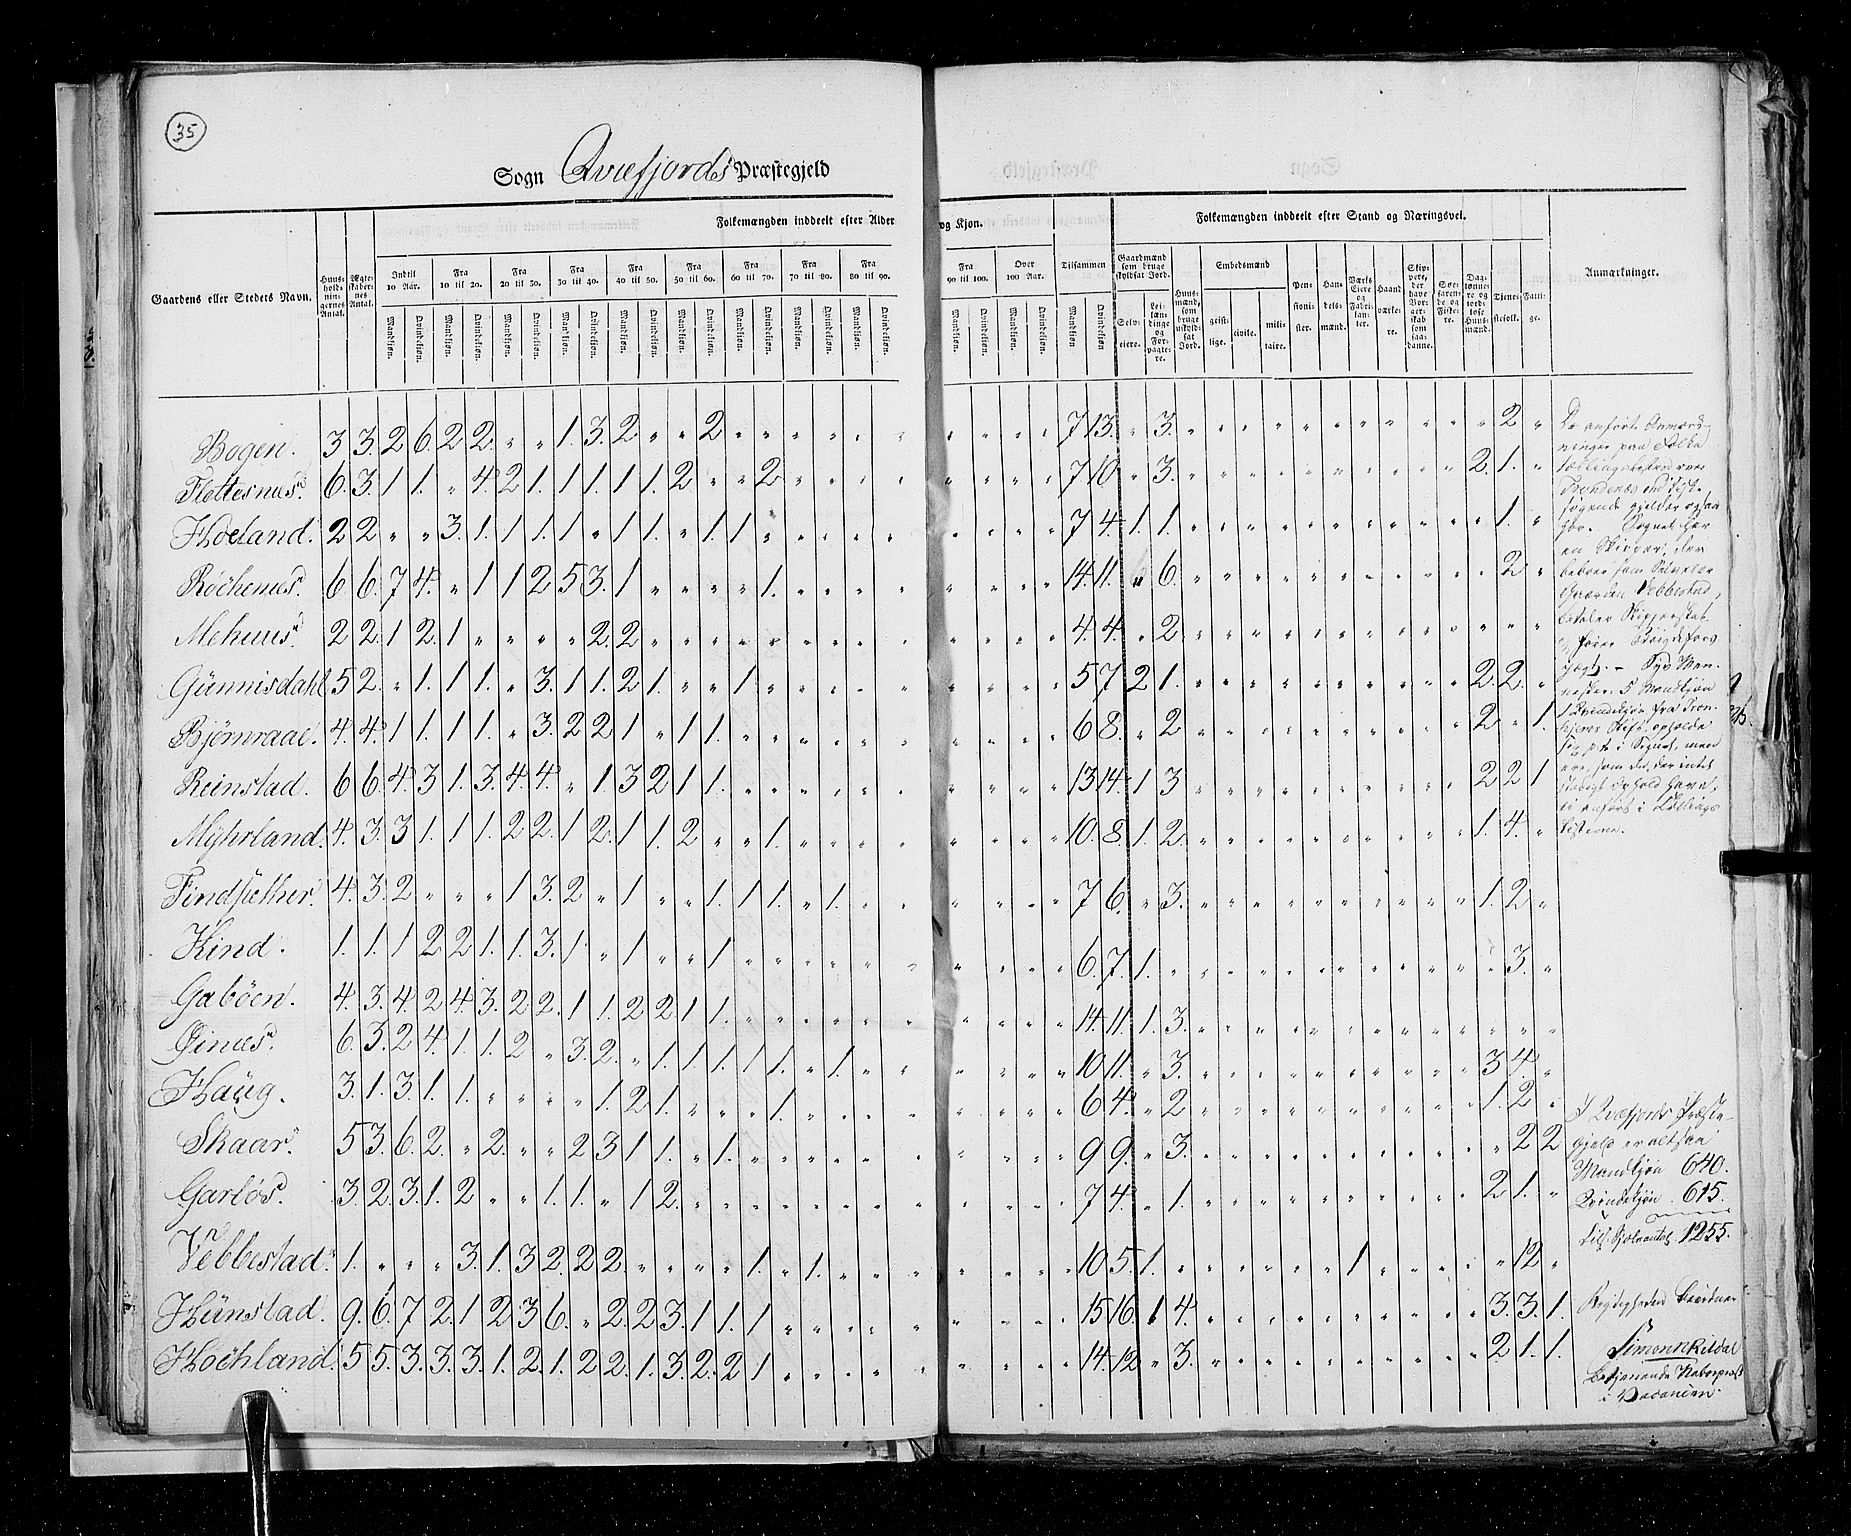 35
Sogn Qvæfjords Præstegjeld
Folkemængden inddeelt efter Alder og Kjøn.
Folkemængden inddeelt efter Stand og Næringsvei.
Gaardens eller Stedets Navn.
Huusholdningernes Antal.
Ægteskabernes Antal.
Indtil 10 Aar.
Fra 10 til 20.
Fra 20 til 30.
Fra 30 til 40.
Fra 40 til 50.
Fra 50 til 60.
Fra 60 til 70.
Fra 70 til 80.
Fra 80 til 90.
Fra 90 til 100.
Over 100 Aar.
Tilsammen
Mandkjøn. Qvindekjøn.
Gaardmænd som bruge skyldsat Jord.
Selveiere.
Leilændinge og Forpagtere.
Huusmænd, som bruge uskyldsat Jord.
Embedsmænd
geistlige. civile. militaire.
Pensionister.
Handelsmænd.
Værks Eiere og Fabrikanter.
Haandværkere.
Skippere, der have Borgerskab som saadanne.
Søefarende og Fiskere.
Daglønnere og jordløse Huusmænd.
Tjenestefolk.
Fattige.
Anmærkninger.
Bogen. 3 3. 2 6. 2 2. „ „ 1. 3. 2 „ „ 2 „ „ „ „ 7 13. „ 3. „ 2 „
Flettesnæs. 6. 3. 1 1. „ 4. 2 1. 1 1. 1 1. 2 „ „ 2 „ „ 7 10. „ 3. „ 2. 1. „
Hoeland. 2 2 „ „ 3. 1. 1 1. 1 „ 1 1. „ 1. 1 „ „ „ 7 4. 1. 1. „ 1. „
Röchenæs. 6 6. 7 4. „ 1 1 2 5 3. 1 „ „ „ „ 1. „ „ 14. 11. „ 6. „ 2 „
Mehuus. 2 2. 1 2. 1 „ „ „ „ 2. 2 „ „ „ „ „ „ „ 4. 4. „ 2 „
Günnisdahl 5 2. „ 1. 1 1. „ 3. 1 1. 2 1. „ „ 1 „ „ „ 5 7. 2 1. „ 2. 2. „
Bjørnraae. 4. 4. 1 1. 1 1. „ 3. 2 2 1 „ 1 1. „ „ „ „ 6 8. „ 2 „ 2 „ 1.
Reinstad. 6 6. 4. 3 1. 3. 4 4. „ 1. 3 2 1 1. „ „ „ „ 13 14. 1 3 „ 2 2 1
Myhrland. 4. 3. 3 1. 1 1. 2 2. 1 2. 1 1. 2 „ „ 1. „ „ 10. 8. 1. 2. „ 1. 4. „
Findsæther. 4. 3. 2 „ „ „ 1 3. 2 „ 1 „ „ 1. 1 1. „ 1. 7 6. „ 3. „ 1. 2 „
Kind. 1. 1. 1 2 2 1. 1 3. 1 „ 1 „ „ 1 „ „ „ „ 6. 7. 1. „ 3. „
Gaböen. 4. 3. 4. 2 4. 3. 2 2. 1 1. 2 2 1 1. „ „ „ „ 14. 11. 1. 3. „
Øinæs. 6. 3. 2 4. 1 1. 2 „ 3. 2. „ 1. 1 1. 1 1. „ 1. 10 11. „ 3. „ 3 4. „
Haüg. 3. 1. 3. 1. 1. „ „ „ „ 1. 2 1. „ „ „ 1. „ „ 6 4. „ 2 „ 1. 2 „
Skaar. 5 3. 6. 2. „ 2. „ „ 2 3 1 1. „ 1. „ „ „ „ 9 9. „ 3. „ 2 2
Garlös. 3. 2. 3. 1. 2 „ „ 1. 1. „ 1 2. „ „ „ „ „ „ 7 4. „ 1. „ 2 1. „
Vebbestad. 1. „ „ „ 3. 1. 3 2. 2 2. „ „ „ „ 1. „ 1. „ 10 5. 1. „ 1 „ 12 „
Hünstad. 9. 6. 7 2. 1 2 3 6. „ 2. 2 3. 1 1. 1 „ „ „ 15 16. 1 4. „ 3. 3. 1.
Höchland. 5 5. 3. 3. 3. 1. 2. 1. 2 2. 1. 3. 2. 2 1 „ „ „ 14. 12 „ 3. „ 2 1. 1.
De anførte Anmærk-
ninger paa Folke
tællingslisten over
Trondenæs
en Skipper, der
beboer som Selveier
Gaarden Vebbestad,
betaler Skipperskat
Syv Men-
nesker 5 Mandkjøn
Qvindekjøn fra Tron-
hjems Stift, opholde
stadigt Ophold have,
ei anført i Tællings
listerne.
I Qvæfjords Præste-
gjeld er altsaa
Mandkjøn 640.
Qvindekjøn. 615.
Til. Sjæleantal 1255.
Simon Kildal
Betjenende Naboepræst
i Vacancen